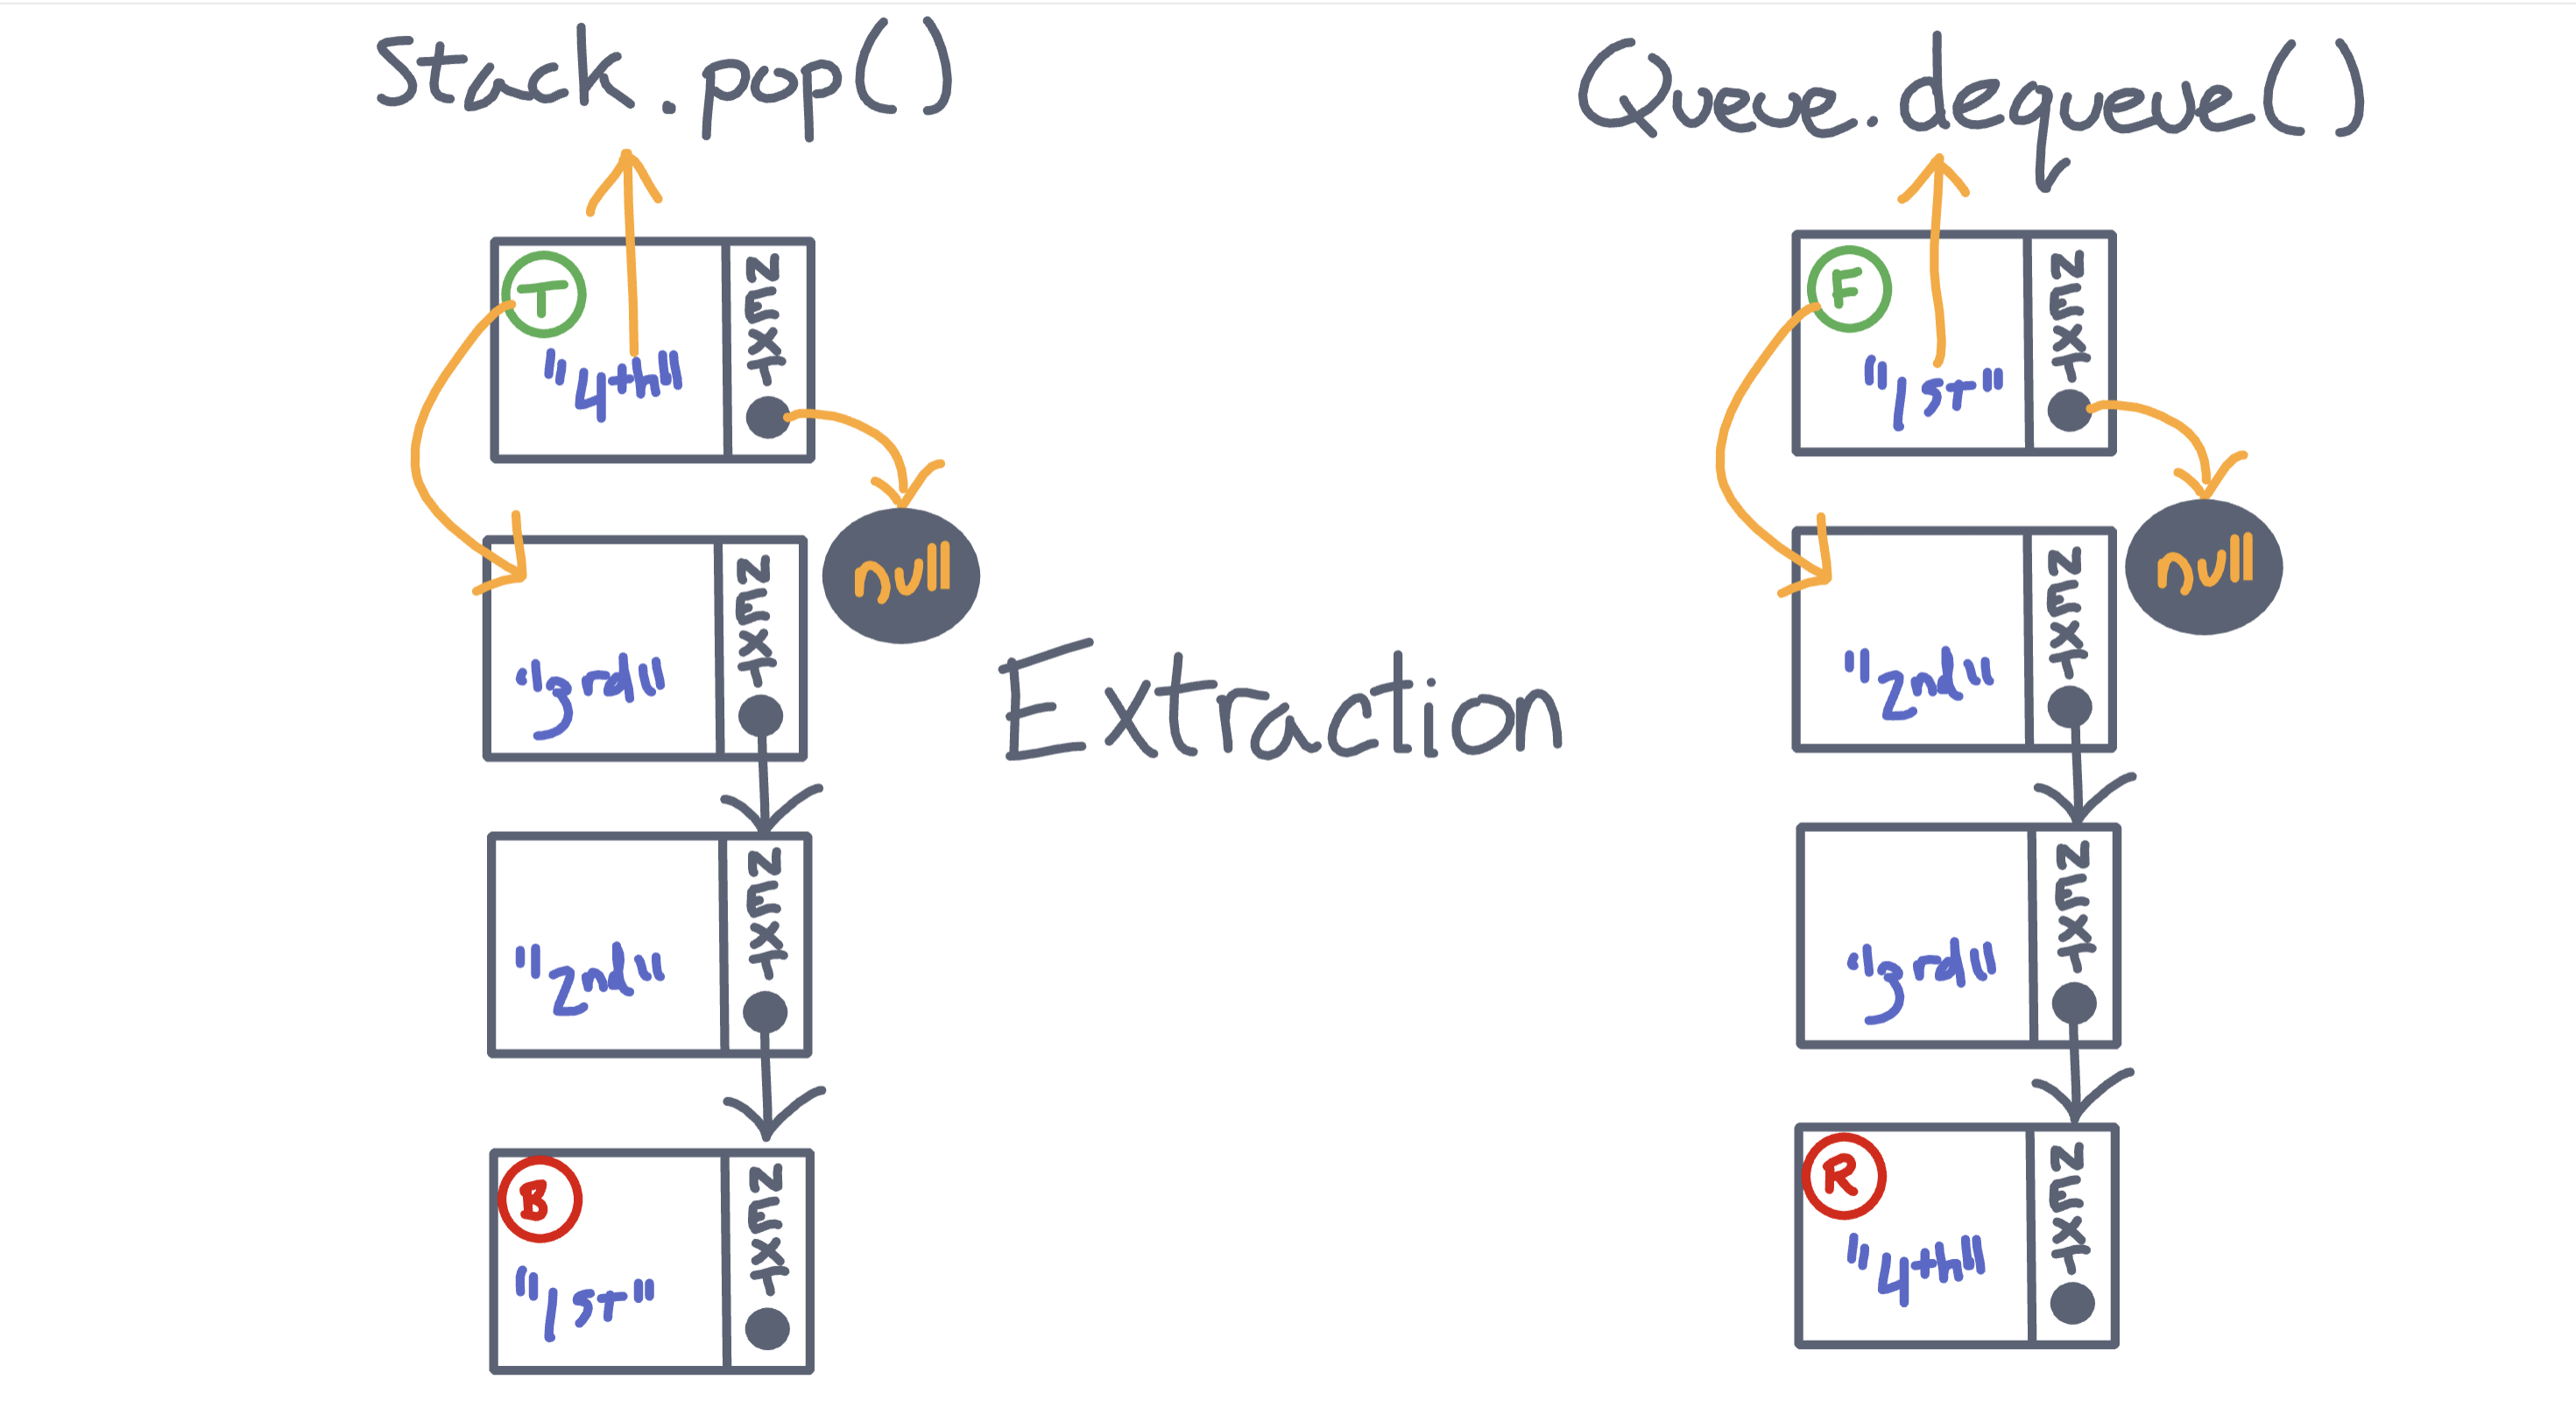 Stack.pop()
T
"4th"
NEXT
null
"3rd"
NEXT
"2nd"
NEXT
B
"1st"
NEXT
Extraction
Queue.dequeue()
F
"1st"
NEXT
null
"2nd"
NEXT
"3rd"
NEXT
R
"4th"
NEXT